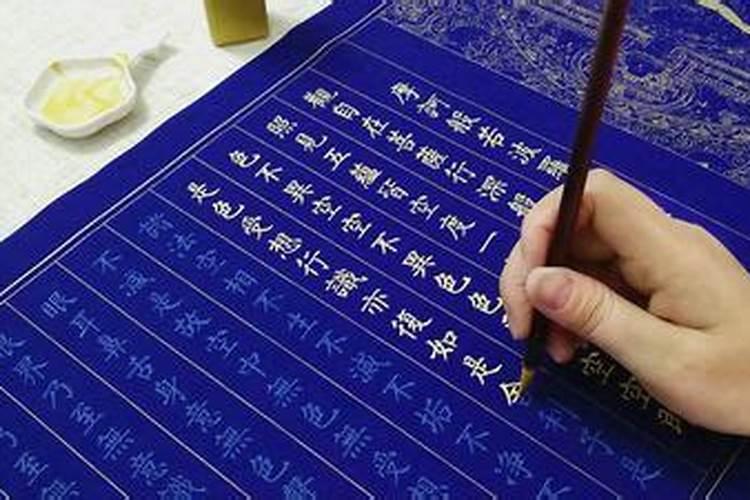 摩訶般若波羅
觀自在菩薩行深般
照見五蘊皆空度一
色不異空空不異色色空空
是色受想行識亦復如是舍利子是
諸法空相不生不滅不垢不淨不
不減是故空中無色無受想
眼耳鼻舌身意無色聲
眼界乃至無意識
乃至無